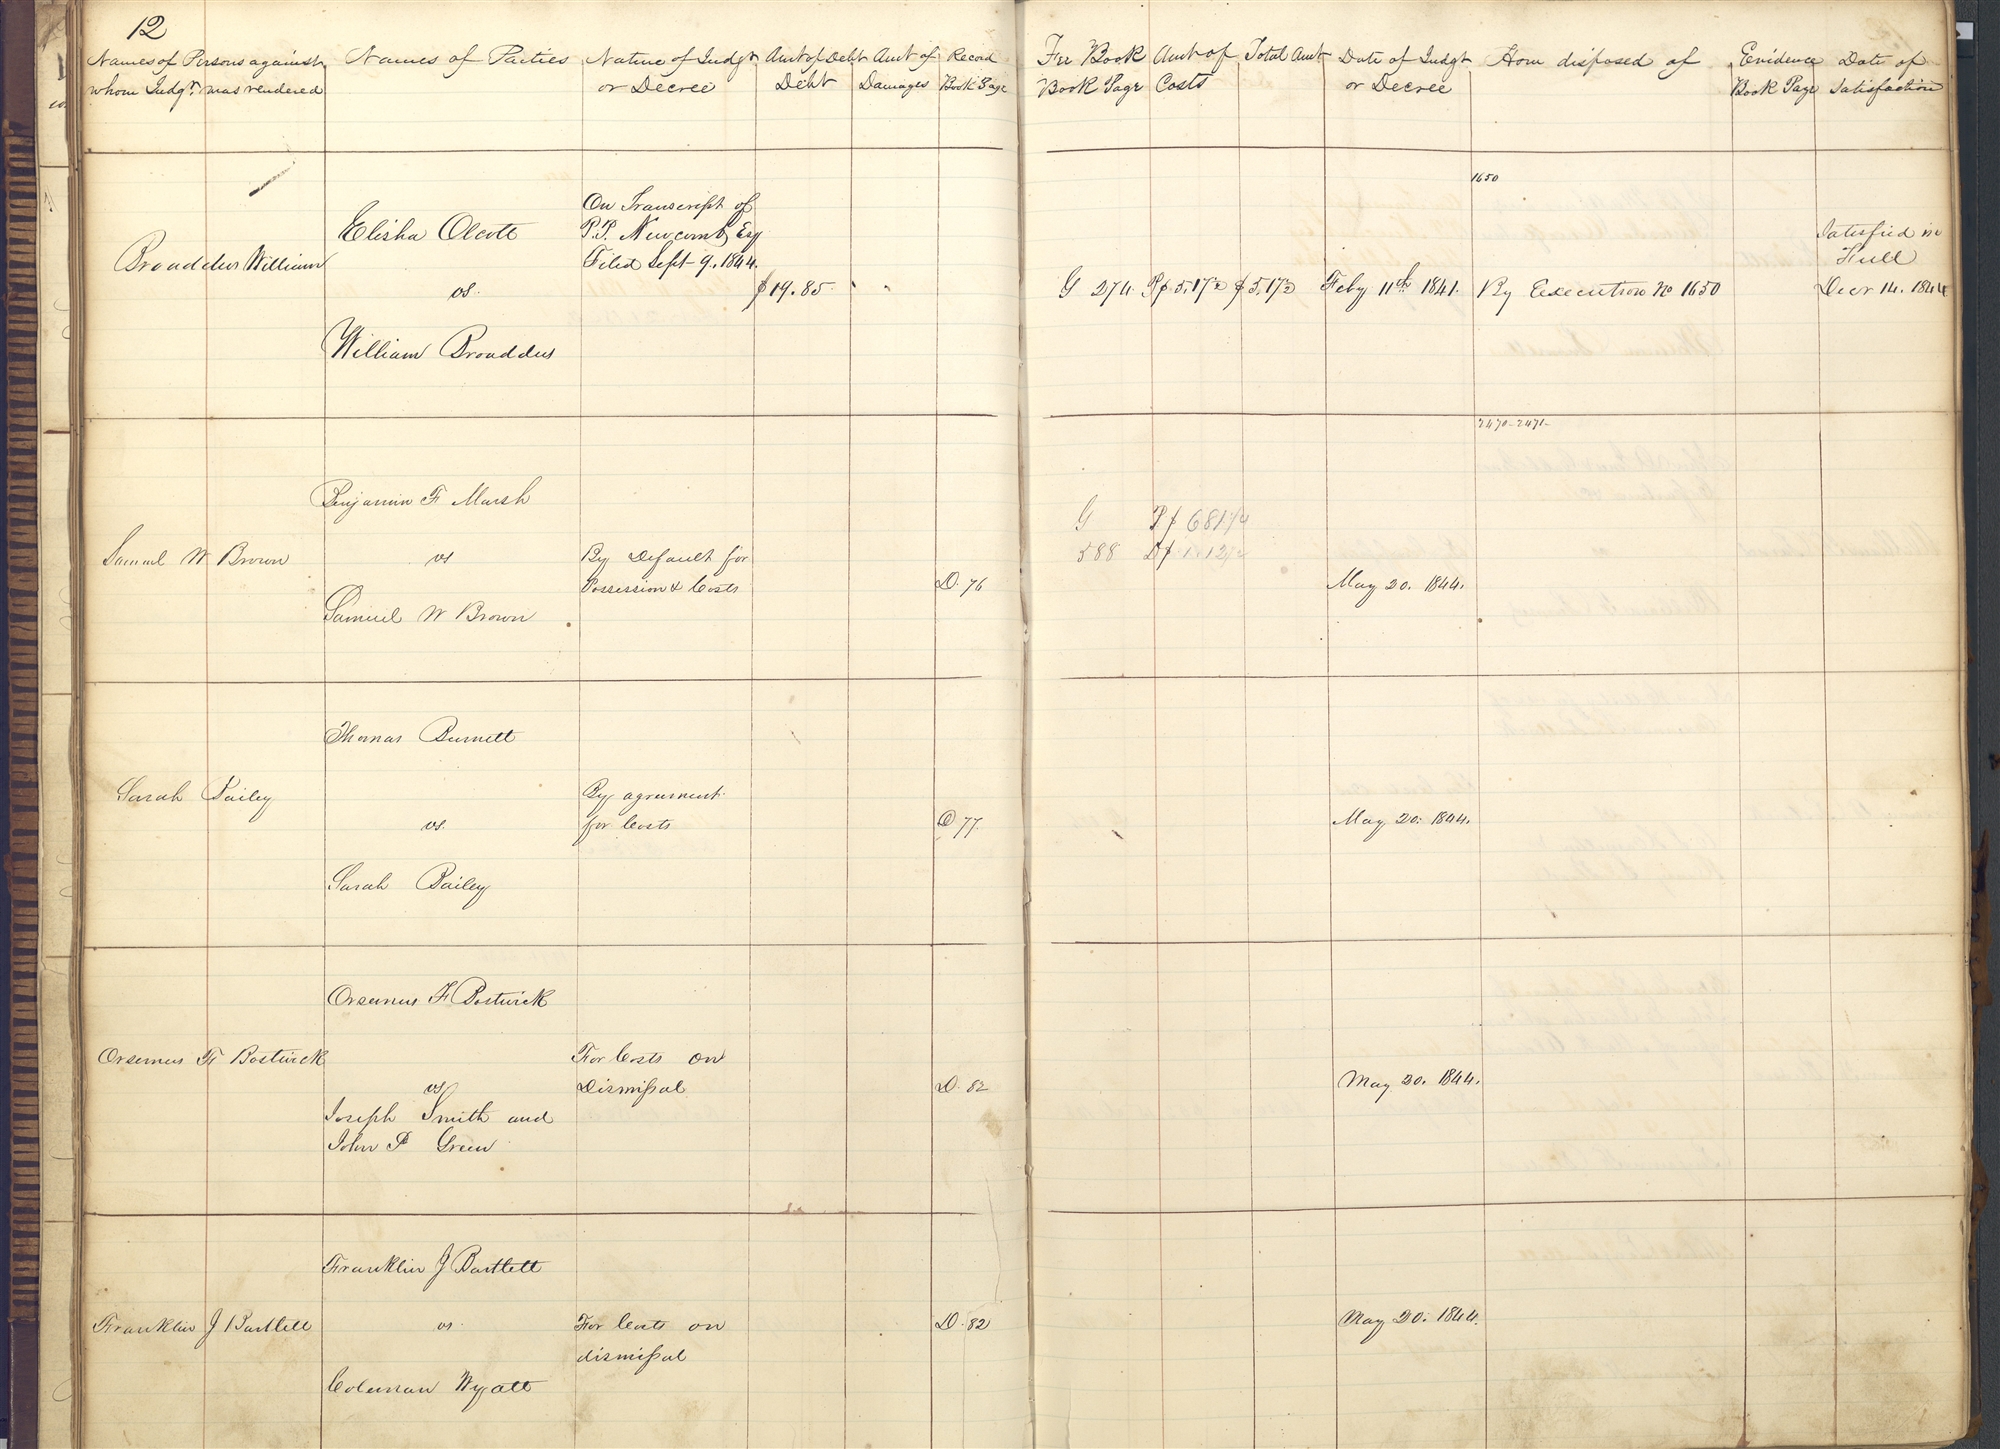 12
Names of Persons against whom Judgt. was rendered
Names of Parties
Nature of Judgt or Decree
Amt of Debt Debt
Amt of Damages
Record Book Page
Fee Book Book Page
Amt of Costs
Total Amt
Date of Judgt or Decree
How disposed of
Evidence Book Page
Date of Satisfaction
1650
Elisha Olcott
On Transcript of
P.P. Newcomb, Esq
Filed Sept 9. 1844.
Satisfied in
Full
Broaddus William
vs.
$19.85.
G 274 P$5.17½ $5.17½ Feby 11th 1841. By Execution No 1650
Decr 14. 1844
William Broaddus
2470-2471-
Benjamin F Marsh
G P$ 6 81¼
Samuel W Brown
vs
By Default for
588 D$ 1.12½
Possession & Costs
D. 76
May 20. 1844.
Samuel W Brown
Thomas Burnett
Sarah Bailey
By agreement
vs.
for Costs
D 77.
May 20. 1844.
Sarah Bailey
Orsemus F Bostwick
Orsemus F Bostwick
For Costs on
vs
Dismissal
D. 82
May 20. 1844.
Joseph Smith and
John P Green
Franklin J Bartlett
Franklin J Bartlett
vs.
For Costs on
D. 82
May 20. 1844.
dismissal
Coleman Wyatt